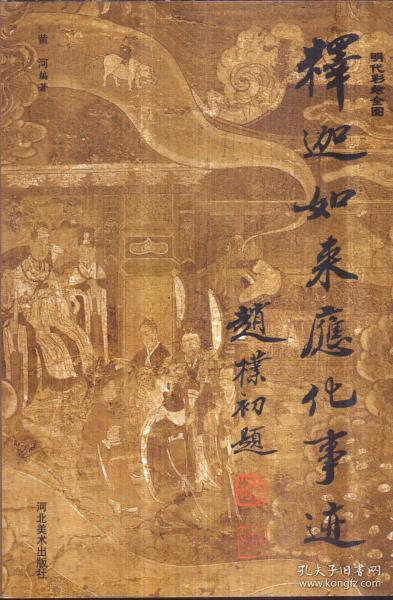 明代彩绘全图
釋迦如来應化事迹
趙樸初題
黄河编著
河北美术出版社
孔夫子旧书网
www.kongfz.com